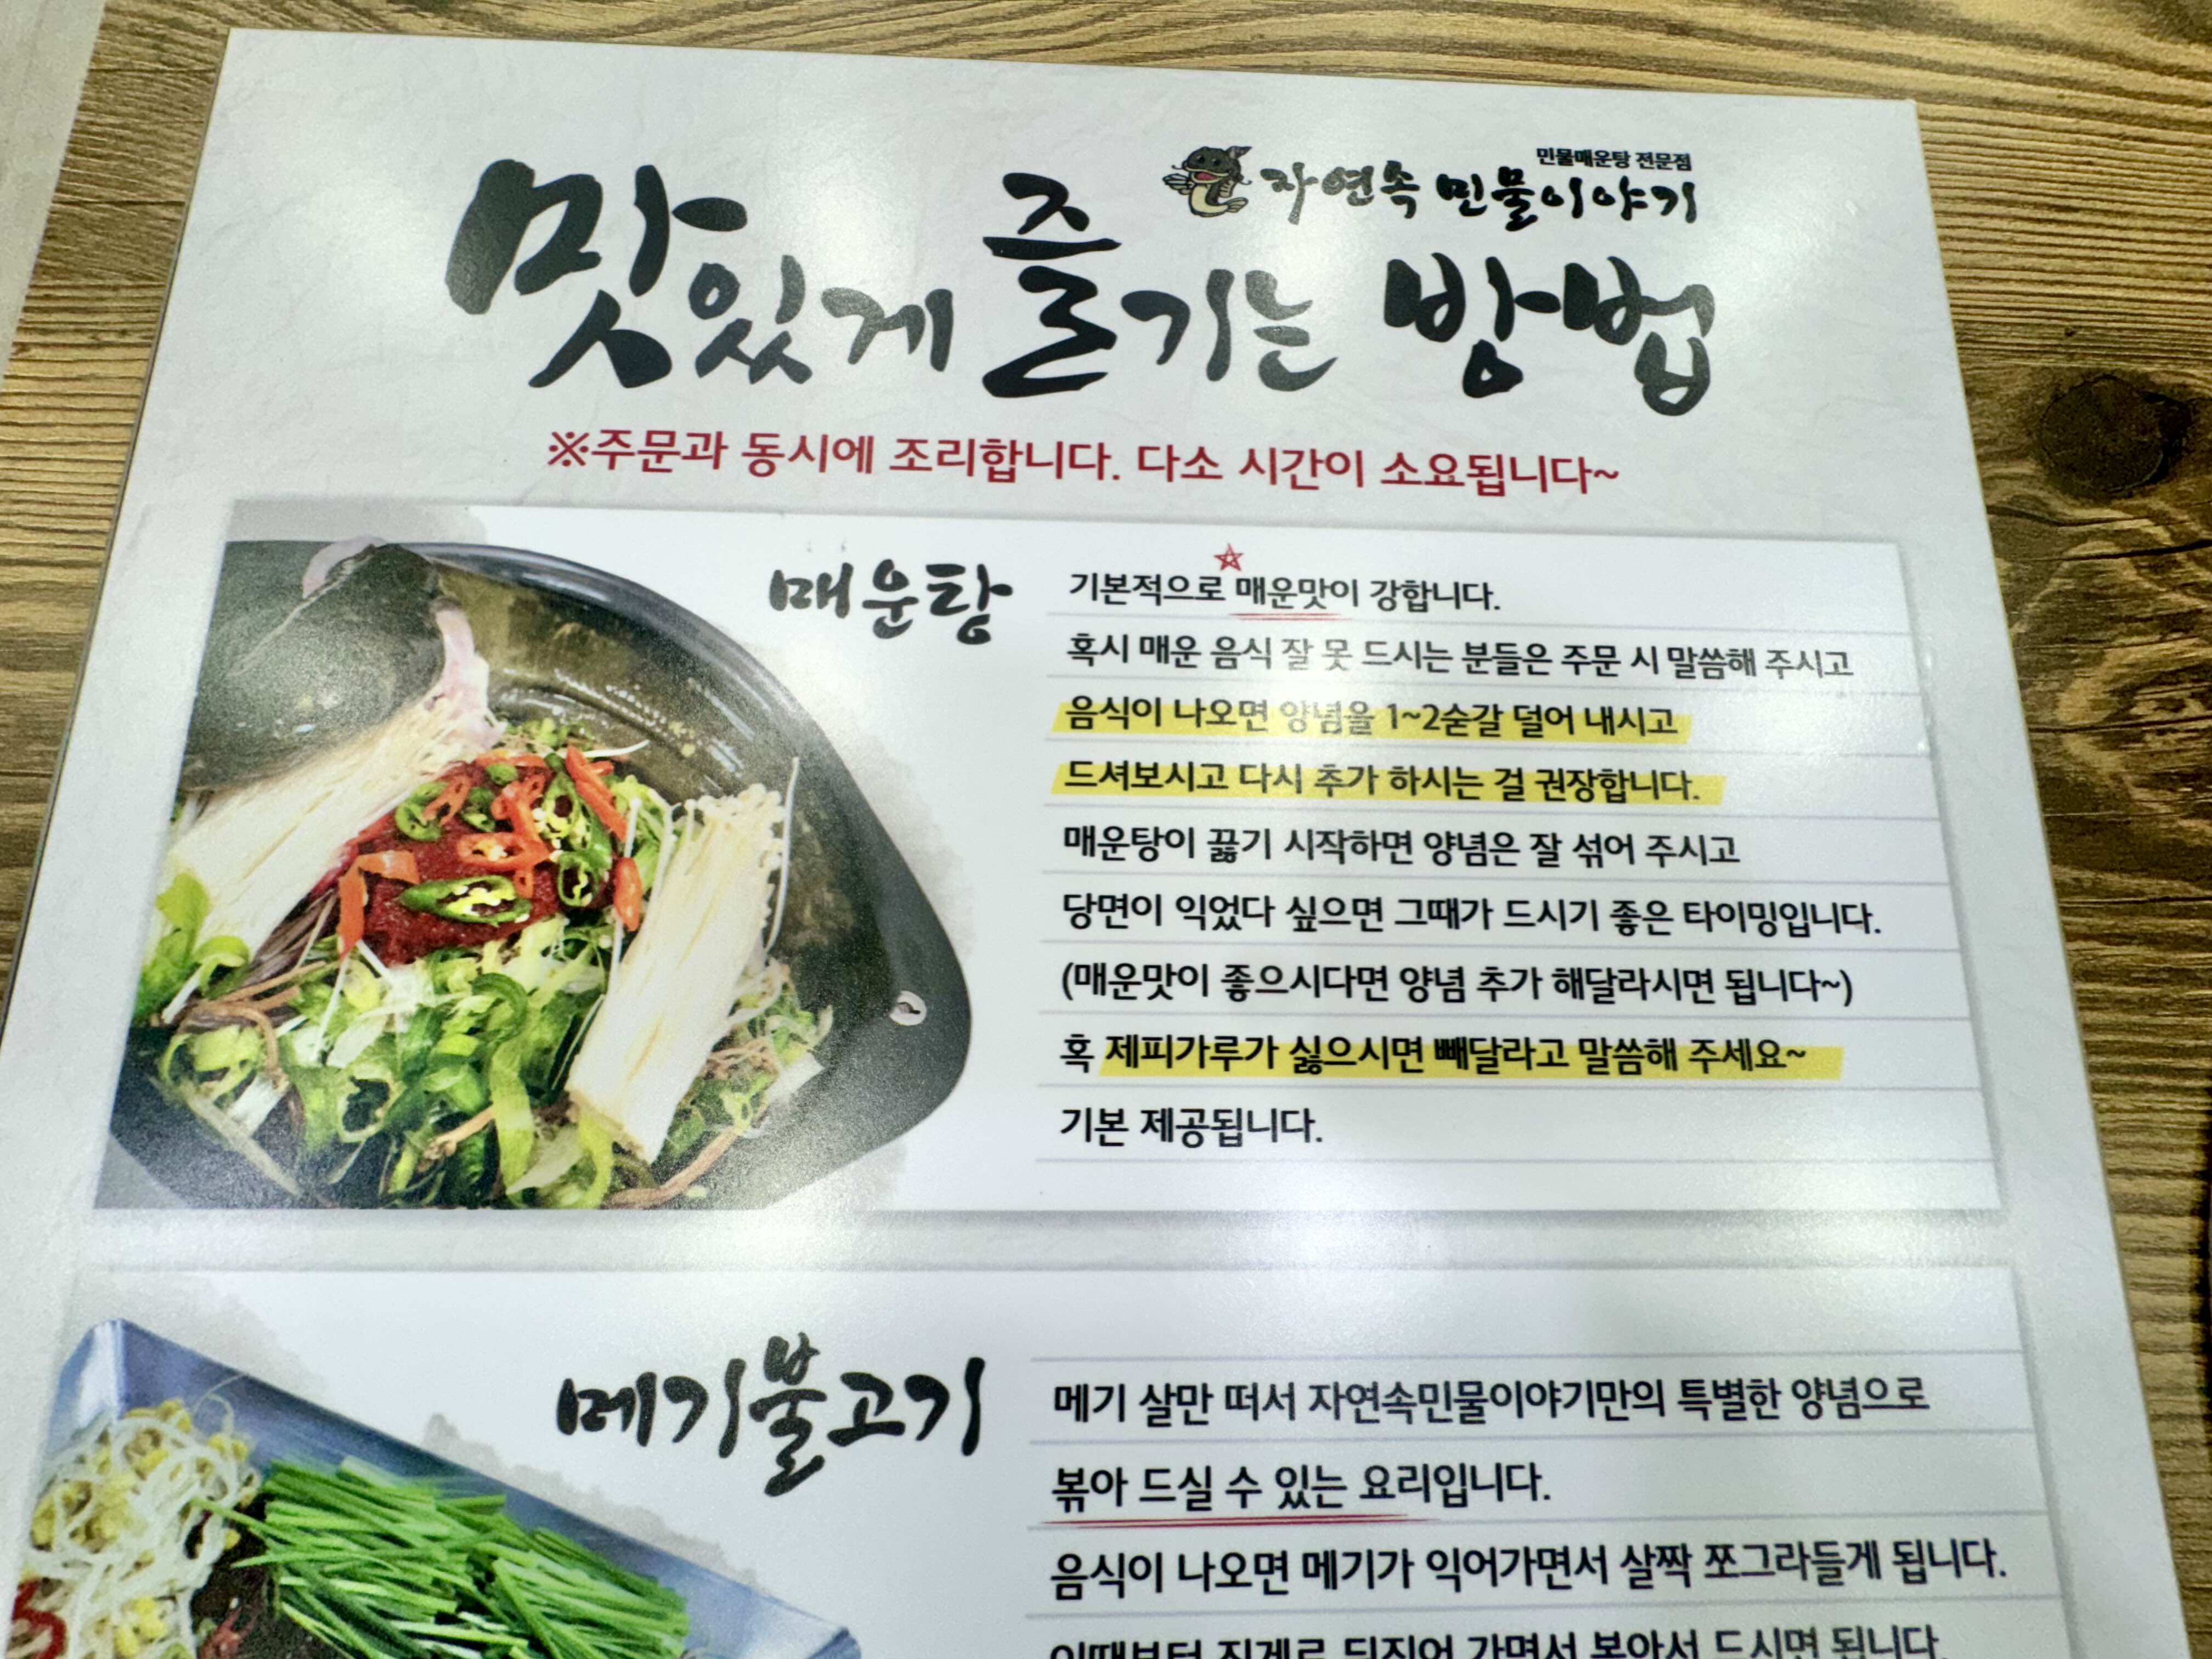 민물매운탕 전문점
자연속 민물이야기
맛있게 즐기는 방법
※주문과 동시에 조리합니다. 다소 시간이 소요됩니다~
매운탕
기본적으로 매운맛이 강합니다.
혹시 매운 음식 잘 못 드시는 분들은 주문 시 말씀해 주시고
음식이 나오면 양념을 1~2숟갈 덜어 내시고
드셔보시고 다시 추가 하시는 걸 권장합니다.
매운탕이 끓기 시작하면 양념은 잘 섞어 주시고
당면이 익었다 싶으면 그때가 드시기 좋은 타이밍입니다.
(매운맛이 좋으시다면 양념 추가 해달라시면 됩니다~)
혹 제피가루가 싫으시면 빼달라고 말씀해 주세요~
기본 제공됩니다.
메기불고기
메기 살만 떠서 자연속민물이야기만의 특별한 양념으로
볶아 드실 수 있는 요리입니다.
음식이 나오면 메기가 익어가면서 살짝 쪼그라들게 됩니다.
이때부터 집게로 뒤집어 가면서 볶아서 드시면 됩니다.